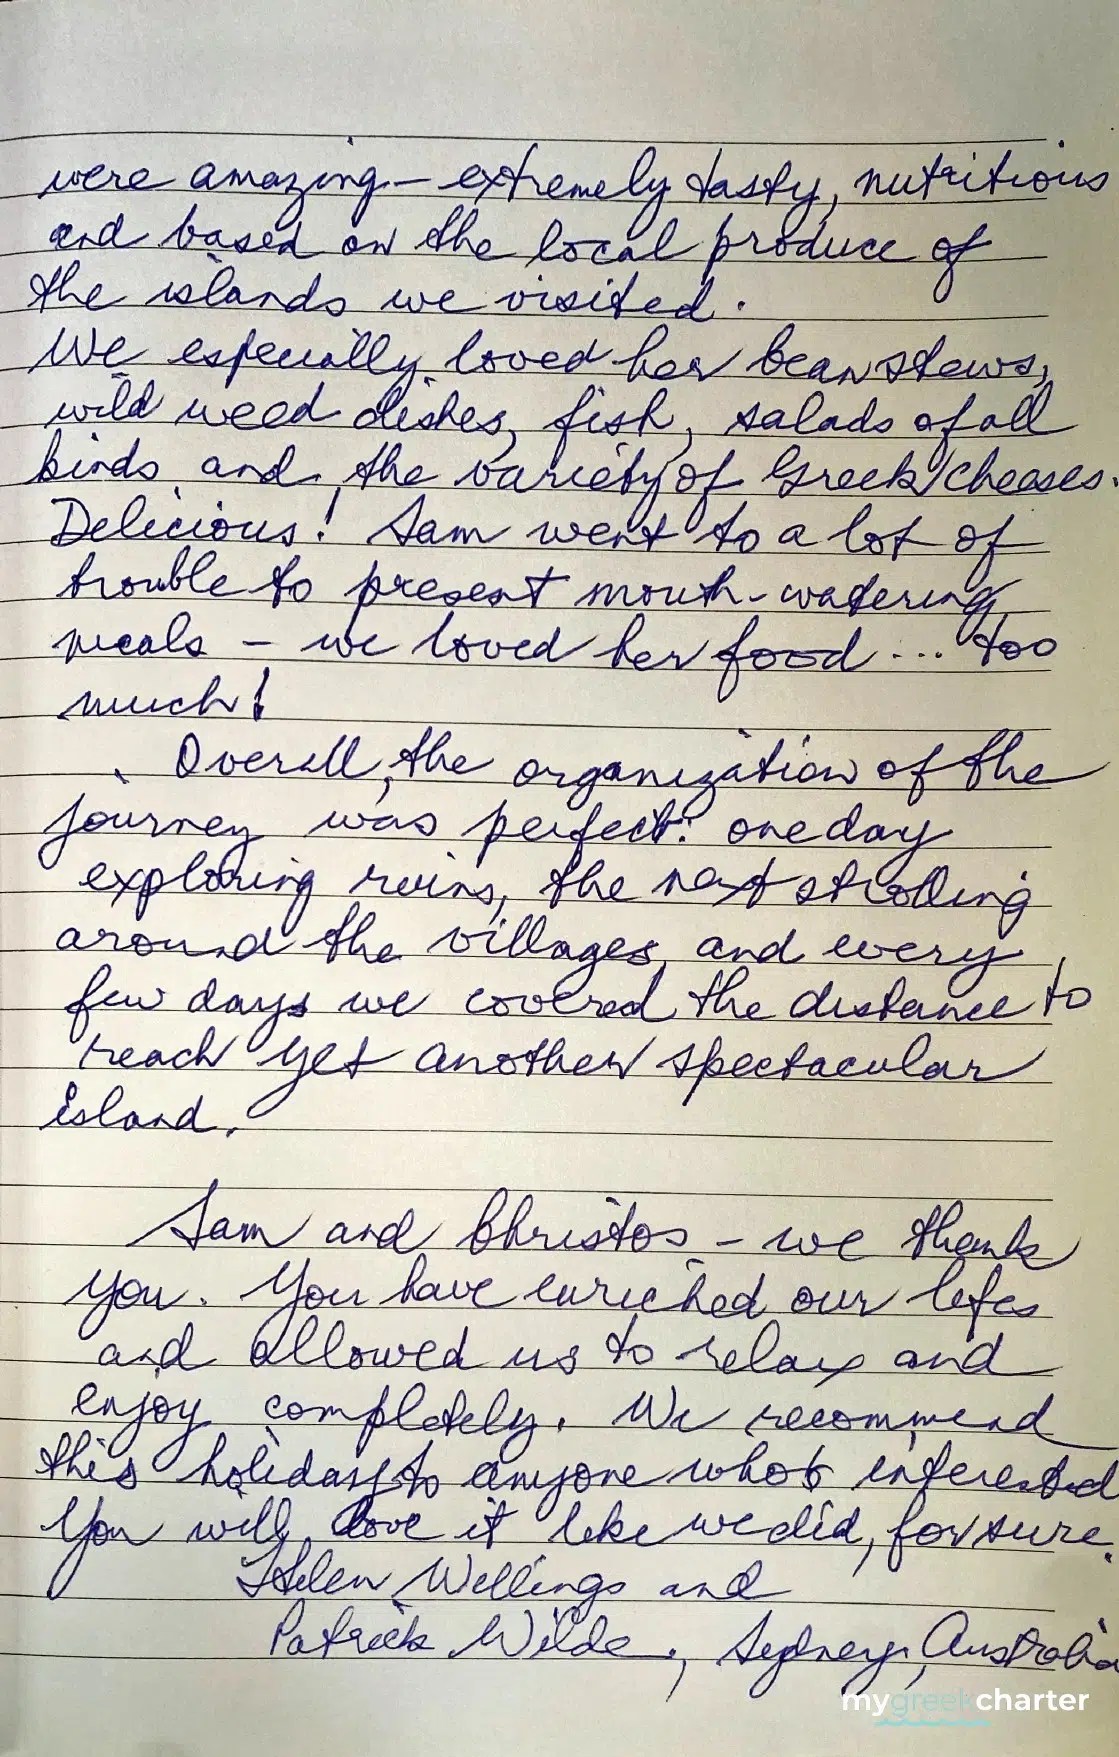 were amazing – extremely tasty, nutritious
and based on the local produce of
the islands we visited.
We especially loved her bean stews,
wild weed dishes, fish, salads of all
kinds and the variety of Greek cheeses.
Delicious! Sam went to a lot of
trouble to present mouth-watering
meals – we loved her food ... too
much!
Overall, the organization of the
journey was perfect: one day
exploring ruins, the next strolling
around the villages and every
few days we covered the distance to
reach yet another spectacular
island.
Sam and Christos – we thank
you. You have enriched our lifes
and allowed us to relax and
enjoy completely. We recommend
this holiday to anyone who's interested
You will love it like we did, for sure.
Helen Wellings and
Patrick Wilde, Sydney, Australia
mygreekcharter